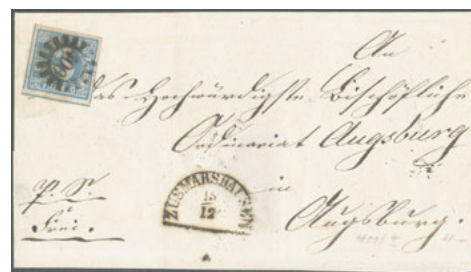 An
das Hochwürdigste Bischöfliche
Ordinariat Augsburg
in
Augsburg.
P. S.
Frei.
ZUSMARSHAUSEN
15
12